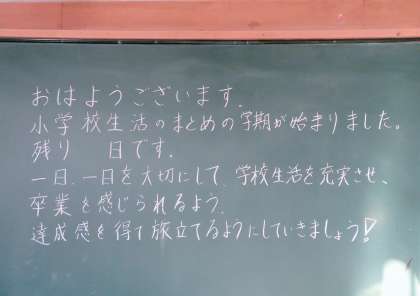 おはようございます.
小学校生活のまとめの学期が始まりました。
残り　　日です.
一日、一日を大切にして、学校生活を充実させ、
卒業を感じられるよう、
達成感を得て旅立てるようにしていきましょう!